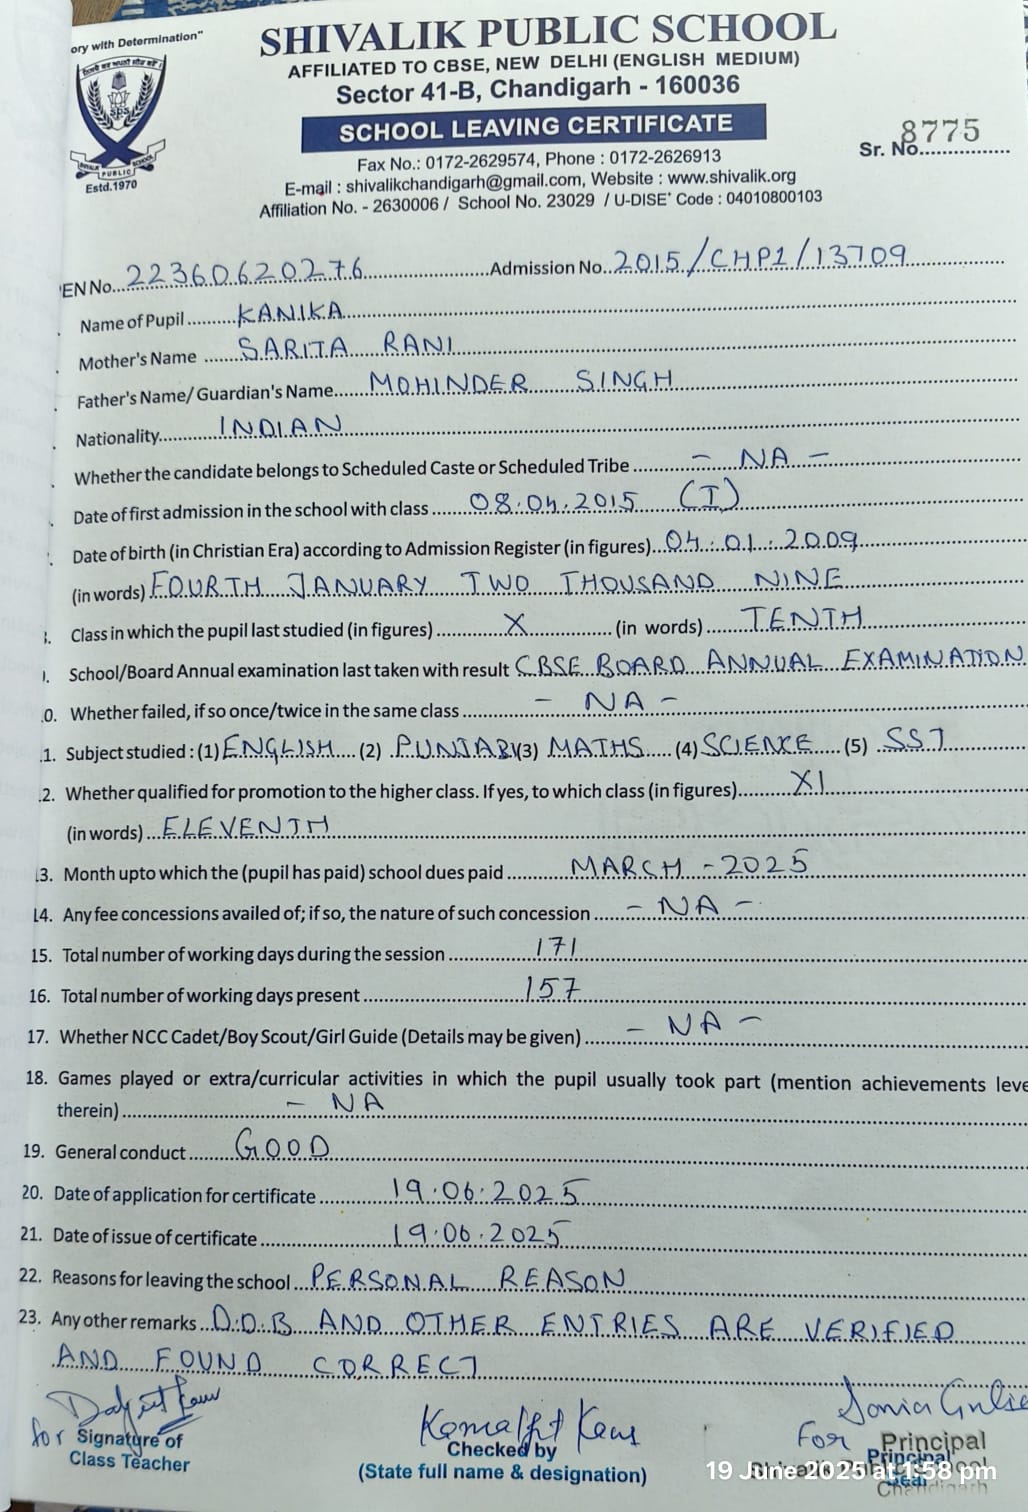 ory with Determination"
SHIVALIK PUBLIC SCHOOL
AFFILIATED TO CBSE, NEW DELHI (ENGLISH MEDIUM)
Sector 41-B, Chandigarh - 160036
SCHOOL LEAVING CERTIFICATE
Sr. No. 8775
SPS
SHIVALIK PUBLIC SCHOOL
Estd.1970
Fax No.: 0172-2629574, Phone : 0172-2626913
E-mail : shivalikchandigarh@gmail.com, Website : www.shivalik.org
Affiliation No. - 2630006 / School No. 23029 / U-DISE+ Code : 04010800103
EN No...22360620276...Admission No..2015/CHP1/13709
Name of Pupil ... KANIKA
Mother's Name ... SARITA RANI
Father's Name/ Guardian's Name... MOHINDER SINGH
Nationality... INDIAN
Whether the candidate belongs to Scheduled Caste or Scheduled Tribe ... - NA -
Date of first admission in the school with class ... 08.04.2015 (I)
Date of birth (in Christian Era) according to Admission Register (in figures)...04.01.2009
(in words) FOURTH JANUARY TWO THOUSAND NINE
Class in which the pupil last studied (in figures) ... X ... (in words) ... TENTH
School/Board Annual examination last taken with result CBSE BOARD ANNUAL EXAMINATION
0. Whether failed, if so once/twice in the same class ... - NA -
1. Subject studied : (1) ENGLISH (2) PUNJABI (3) MATHS (4) SCIENCE (5) SST
2. Whether qualified for promotion to the higher class. If yes, to which class (in figures)... XI
(in words) ... ELEVENTH
13. Month upto which the (pupil has paid) school dues paid ... MARCH - 2025
14. Any fee concessions availed of; if so, the nature of such concession ... - NA -
15. Total number of working days during the session ... 171
16. Total number of working days present ... 157
17. Whether NCC Cadet/Boy Scout/Girl Guide (Details may be given) ... - NA -
18. Games played or extra/curricular activities in which the pupil usually took part (mention achievements leve
therein) ... - NA
19. General conduct ... GOOD
20. Date of application for certificate ... 19.06.2025
21. Date of issue of certificate ... 19.06.2025
22. Reasons for leaving the school ... PERSONAL REASON
23. Any other remarks ... D.O.B AND OTHER ENTRIES ARE VERIFIED
AND FOUND CORRECT
for Signature of
Class Teacher
Checked by
(State full name & designation)
For Principal
Principal
Seal
Chandigarh
19 June 2025 at 1:58 pm